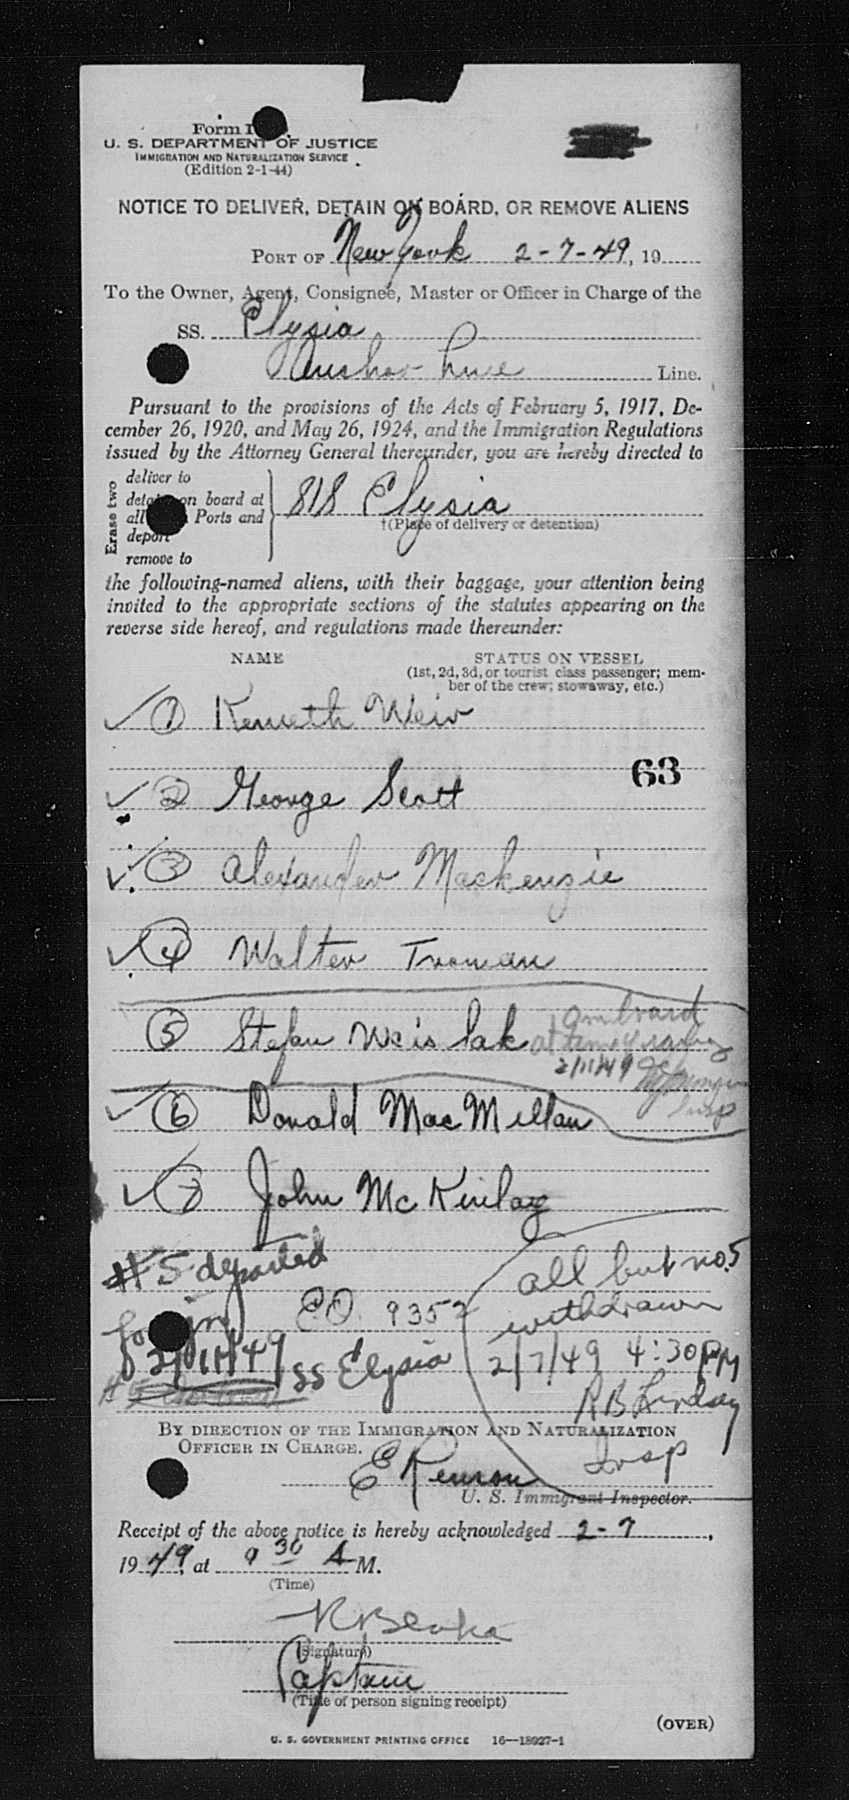 Form I
U. S. DEPARTMENT OF JUSTICE
IMMIGRATION AND NATURALIZATION SERVICE
(Edition 2-1-44)
NOTICE TO DELIVER, DETAIN ON BOARD, OR REMOVE ALIENS
PORT OF New York 2-7-49, 19
To the Owner, Agent, Consignee, Master or Officer in Charge of the
SS. Elysia
Anchor Line Line.
Pursuant to the provisions of the Acts of February 5, 1917, De-
cember 26, 1920, and May 26, 1924, and the Immigration Regulations
issued by the Attorney General thereunder, you are hereby directed to
Erase two
deliver to
detain on board at
all Ports and
deport
remove to
S/S Elysia
†(Place of delivery or detention)
the following-named aliens, with their baggage, your attention being
invited to the appropriate sections of the statutes appearing on the
reverse side hereof, and regulations made thereunder:
NAME STATUS ON VESSEL
(1st, 2d, 3d, or tourist class passenger; mem-
ber of the crew; stowaway, etc.)
✓ 1 Kenneth Weir
63
✓ 2 George Scott
✓ 3 Alexander Mackenzie
✓ 4 Walter Troman
5 Stefan Weis lak
onboard
at time of sailing
2/11/49
Insp
✓ 6 Donald MacMillan
✓ 7 John McKinlay
#5 departed
foreign
2/11/49 SS Elysia
EO 9352
all but no. 5
withdrawn
2/7/49 4:30 PM
RB Lindsay
Insp
BY DIRECTION OF THE IMMIGRATION AND NATURALIZATION
OFFICER IN CHARGE.
E
U. S. Immigrant Inspector.
Receipt of the above notice is hereby acknowledged 2-7,
1949, at 9 30 A M.
(Time)
(Signature)
Captain
(Title of person signing receipt)
(OVER)
U. S. GOVERNMENT PRINTING OFFICE 16—18027-1